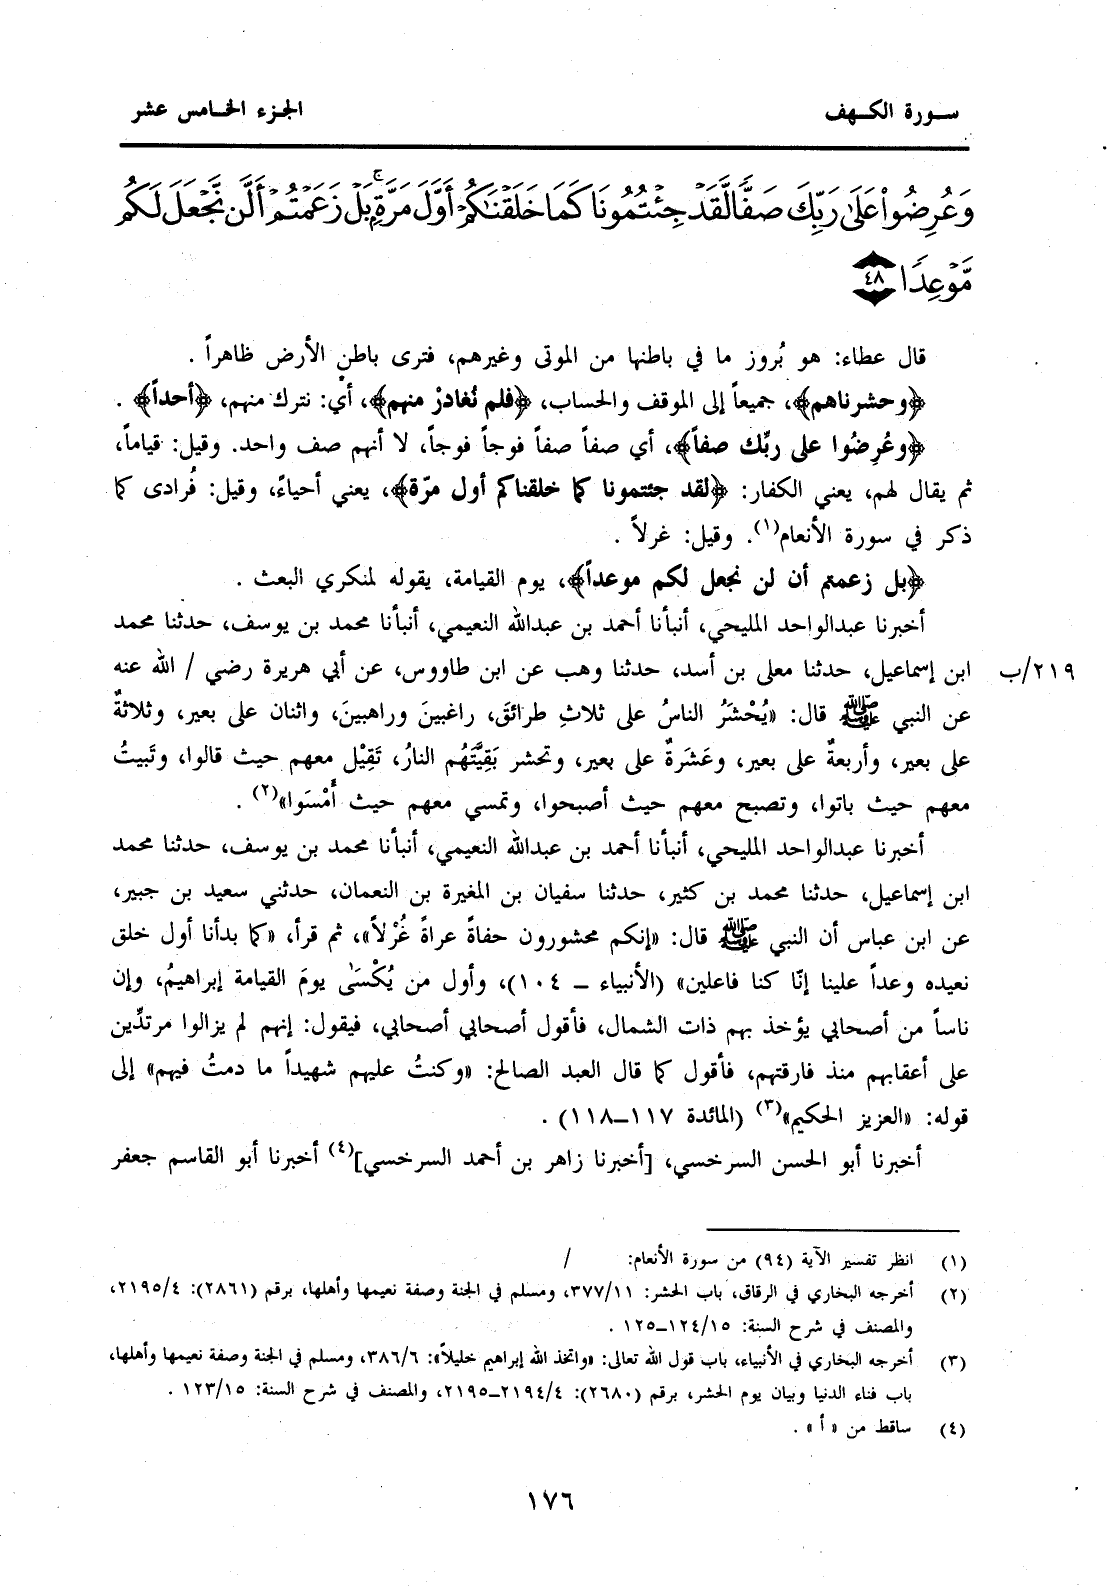 سورة الكهف
الجزء الخامس عشر
وَعُرِضُوا۟ عَلَىٰ رَبِّكَ صَفًّا لَّقَدْ جِئْتُمُونَا كَمَا خَلَقْنَـٰكُمْ أَوَّلَ مَرَّةٍۭ ۚ بَلْ زَعَمْتُمْ أَلَّن نَّجْعَلَ لَكُم
مَّوْعِدًا ٤٨
قال عطاء: هو بُروز ما في باطنها من الموتى وغيرهم، فترى باطن الأرض ظاهراً .
﴿وحشرناهم﴾، جميعاً إلى الموقف والحساب، ﴿فلم نُغادرْ منهم﴾، أي: نترك منهم، ﴿أحداً﴾ .
﴿وعُرِضُوا على ربِّك صفاً﴾، أي صفاً صفاً فوجاً فوجاً، لا أنهم صف واحد. وقيل: قياماً،
ثم يقال لهم، يعني الكفار: ﴿لقد جئتمونا كما خلقناكم أول مرّة﴾، يعني أحياءً، وقيل: فُرادى كما
ذكر في سورة الأنعام(١). وقيل: غرلاً .
﴿بل زعمتم أن لن نجعل لكم موعداً﴾، يوم القيامة، يقوله لمنكري البعث .
أخبرنا عبدالواحد المليحي، أنبأنا أحمد بن عبدالله النعيمي، أنبأنا محمد بن يوسف، حدثنا محمد
ابن إسماعيل، حدثنا معلى بن أسد، حدثنا وهب عن ابن طاووس، عن أبي هريرة رضي / الله عنه
٢١٩/ب
عن النبي ﷺ قال: «يُحْشَرُ الناسُ على ثلاثِ طرائقَ، راغبينَ وراهبينَ، واثنان على بعير، وثلاثةٌ
على بعير، وأربعةٌ على بعير، وعَشَرةٌ على بعير، وتحشر بَقِيَّتَهُم النارُ، تَقِيْل معهم حيث قالوا، وتَبيتُ
معهم حيث باتوا، وتصبح معهم حيث أصبحوا، وتمسي معهم حيث أَمْسَوا»(٢) .
أخبرنا عبدالواحد المليحي، أنبأنا أحمد بن عبدالله النعيمي، أنبأنا محمد بن يوسف، حدثنا محمد
ابن إسماعيل، حدثنا محمد بن كثير، حدثنا سفيان بن المغيرة بن النعمان، حدثني سعيد بن جبير،
عن ابن عباس أن النبي ﷺ قال: «إنكم محشورون حفاةً عراةً غُرْلاً»، ثم قرأ، «كما بدأنا أول خلق
نعيده وعداً علينا إنّا كنا فاعلين» (الأنبياء – ١٠٤)، وأول من يُكْسَىٰ يومَ القيامة إبراهيمُ، وإن
ناساً من أصحابي يؤخذ بهم ذات الشمال، فأقول أصحابي أصحابي، فيقول: إنهم لم يزالوا مرتدِّين
على أعقابهم منذ فارقتهم، فأقول كما قال العبد الصالح: «وكنتُ عليهم شهيداً ما دمتُ فيهم» إلى
قوله: «العزيز الحكيم»(٣) (المائدة ١١٧–١١٨) .
أخبرنا أبو الحسن السرخسي، [أخبرنا زاهر بن أحمد السرخسي](٤) أخبرنا أبو القاسم جعفر
(١) انظر تفسير الآية (٩٤) من سورة الأنعام: /
(٢) أخرجه البخاري في الرقاق، باب الحشر: ٣٧٧/١١، ومسلم في الجنة وصفة نعيمها وأهلها، برقم (٢٨٦١): ٢١٩٥/٤،
والمصنف في شرح السنة: ١٢٤/١٥–١٢٥ .
(٣) أخرجه البخاري في الأنبياء، باب قول الله تعالى: «واتخذ الله إبراهيم خليلاً»: ٣٨٦/٦، ومسلم في الجنة وصفة نعيمها وأهلها،
باب فناء الدنيا وبيان يوم الحشر، برقم (٢٦٨٠): ٢١٩٤/٤–٢١٩٥، والمصنف في شرح السنة: ١٢٣/١٥ .
(٤) ساقط من «أ» .
١٧٦